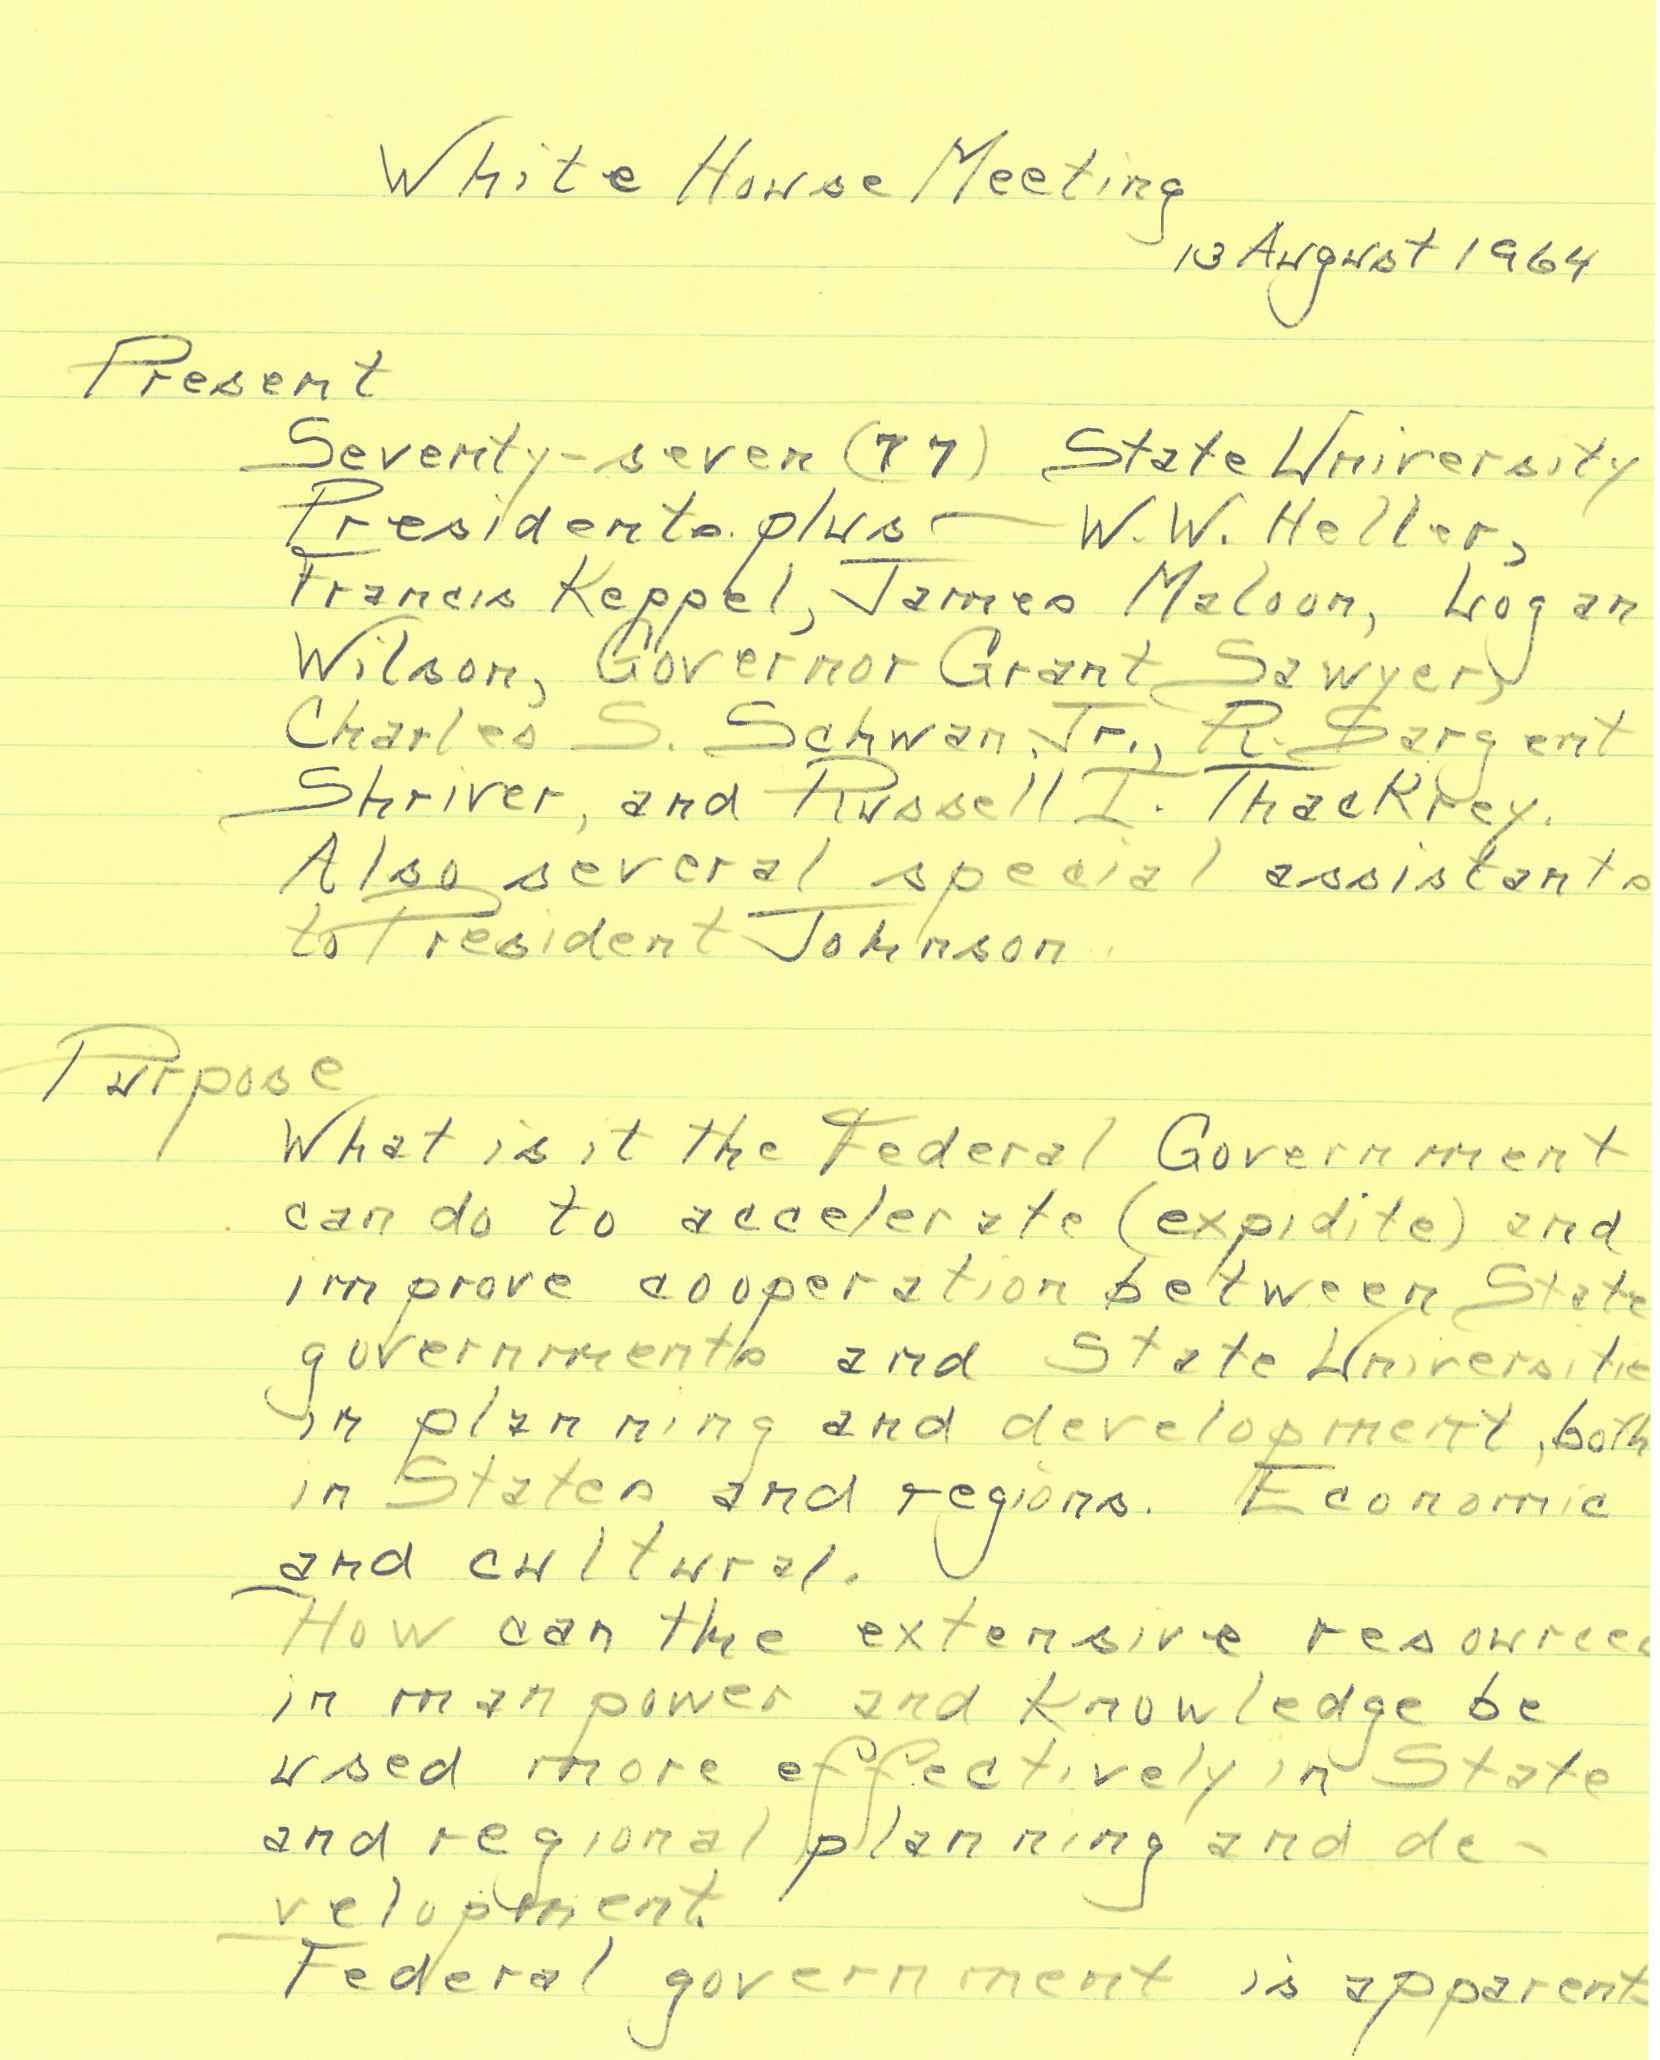 White House Meeting
13 August 1964
Present
Seventy-seven (77) State University
Presidents plus — W.W. Heller,
Francis Keppel, James Maloon, Logan
Wilson, Governor Grant Sawyer,
Charles S. Schwan Jr., R. Sargent
Shriver, and Russell I. Thackrey.
Also several special assistants
to President Johnson.
Purpose
What is it the Federal Government
can do to accelerate (expidite) and
improve cooperation between State
governments and State Universitie
in planning and development, both
in States and regions. Economic
and cultural.
How can the extensive resources
in manpower and knowledge be
used more effectively in State
and regional planning and de-
velopment.
Federal government is apparent